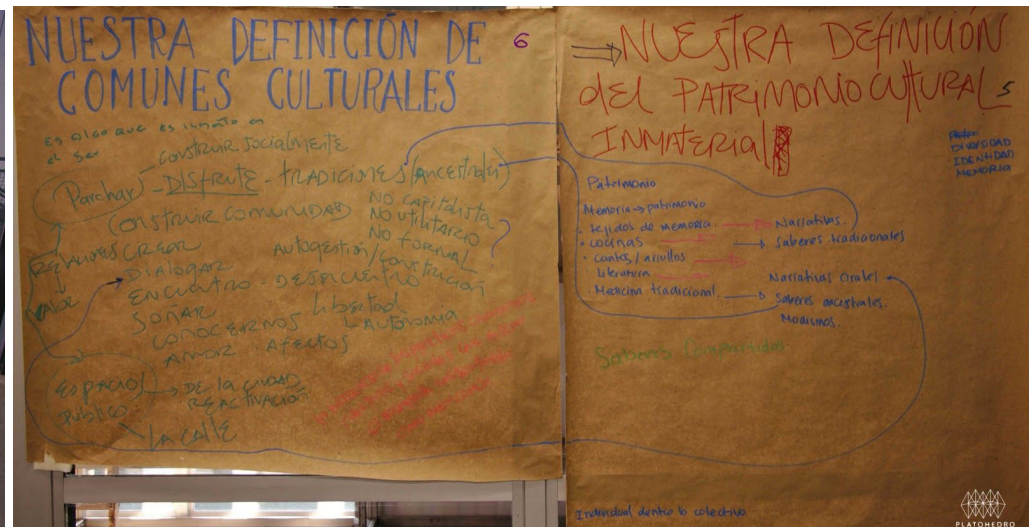 NUESTRA DEFINICIÓN DE
COMUNES CULTURALES
6
ES Algo que es innato en
el ser
CONSTRUIR SOCIALMENTE
Parchar - DISFRUTE - TRADICIONES (Ancestrales)
CONSTRUIR COMUNIDAD
NO CAPITALISTA
NO UTILITARIO
NO FORMAL
RELACIONES CREAR
Autogestión/construcción
DIALOGAR
ENCUENTRO - DESENCUENTRO
SOÑAR
Libertad
CONOCERNOS
Autónomia
AMOR AFECTOS
ESPACIO
PUBLICO
DE LA CIUDAD
REACTIVACIÓN
LA CALLE
NUESTRA DEFINICIÓN
del PATRIMONIO CULTURAL
5
INMATERIAL
DIVERSIDAD
IDENTIDAD
MEMORIA
Patrimonio
Memoria → patrimonio
• tejidos de memoria. → Narrativas.
• cocinas → Saberes tradicionales
• cantos / arrullos
Literatura Narrativas Orales
• Medicina tradicional. → Saberes ancestrales.
Modismos.
Saberes Compartidos
Individual dentro lo colectivo
PLATOHEDRO